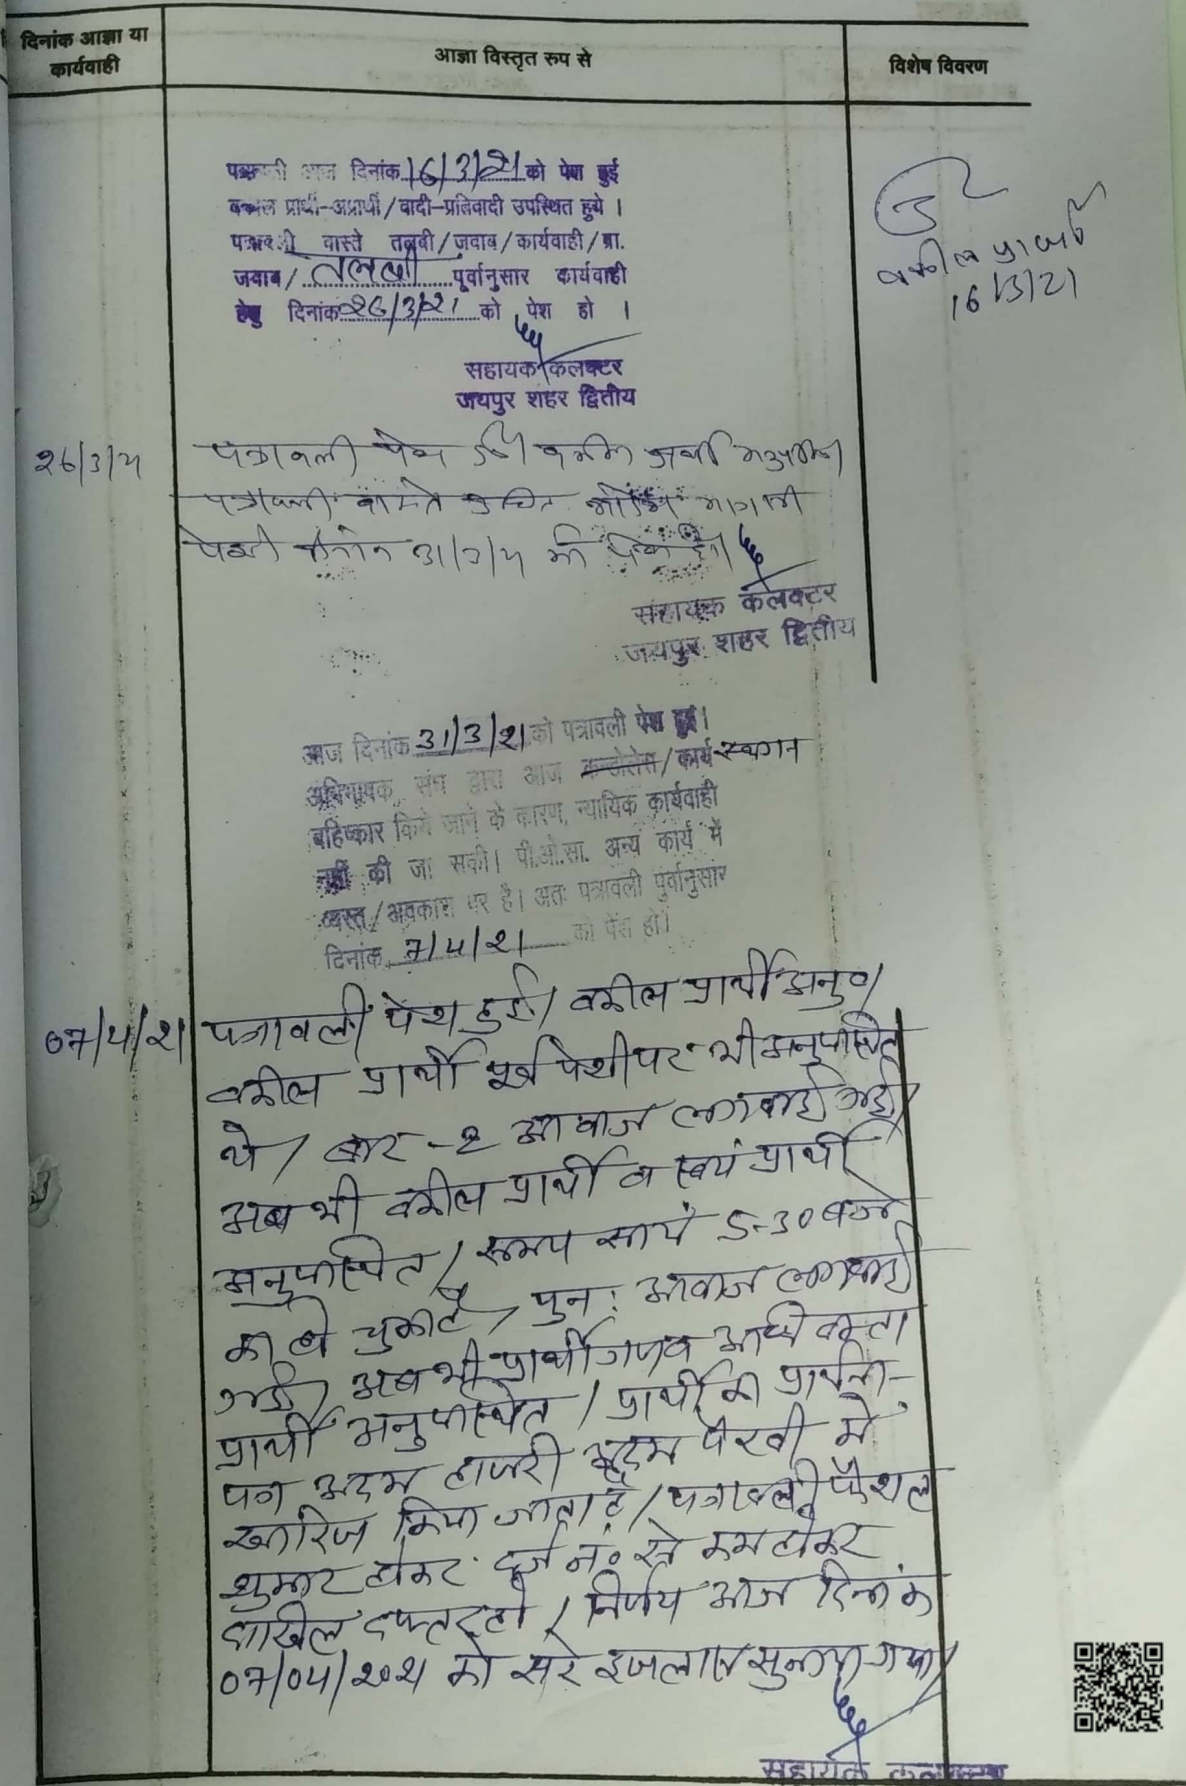 दिनांक आज्ञा या
कार्यवाही
आज्ञा विस्तृत रुप से
विशेष विवरण
पत्रावली आज दिनांक 16/3/21 को पेश हुई
वकील प्रार्थी-अप्रार्थी/वादी-प्रतिवादी उपस्थित हुये ।
पत्रावली वास्ते तलबी/जवाब/कार्यवाही/प्रा.
जवाब/ तलबी पूर्वानुसार कार्यवाही
हेतु दिनांक 26/3/21 को पेश हो ।
सहायक कलक्टर
जयपुर शहर द्वितीय
वकील प्रार्थी
16/3/21
26/3/21 पत्रावली पेश हुई
पत्रावली वास्ते उचित आदेश आगामी
पेशी दिनांक 31/3/21 को पेश हो।
सहायक कलक्टर
जयपुर शहर द्वितीय
आज दिनांक 31/3/21 को पत्रावली पेश हुई।
अभिभाषक संघ द्वारा आज कन्डोलेंस/कार्य स्थगन
बहिष्कार किये जाने के कारण, न्यायिक कार्यवाही
नहीं की जा सकी। पी.ओ.सा. अन्य कार्य में
व्यस्त/अवकाश पर है। अतः पत्रावली पुर्वानुसार
दिनांक 7/4/21 को पेश हो।
07/4/21 पत्रावली पेश हुई। वकील प्रार्थी अनु०।
वकील प्रार्थी पूर्व पेशी पर भी अनुपस्थित
थे। बार-2 आवाज लगवाई गई।
अब भी वकील प्रार्थी व स्वयं प्रार्थी
अनुपस्थित। समय सायं 5-30 बजे
का हो चुका है, पुनः आवाज लगवाई
गई। अब भी प्रार्थीगण व अधिवक्ता
प्रार्थी अनुपस्थित। प्रार्थी का प्रार्थना-
पत्र अदम हाजरी अदम पैरवी में
खारिज किया जाता है। पत्रावली फैशल
शुमार होकर दर्ज नं० से कम होकर
दाखिल दफ्तर हो। निर्णय आज दिनांक
07/04/2021 को सरे इजलास सुनाया गया।
सहायक कलक्टर